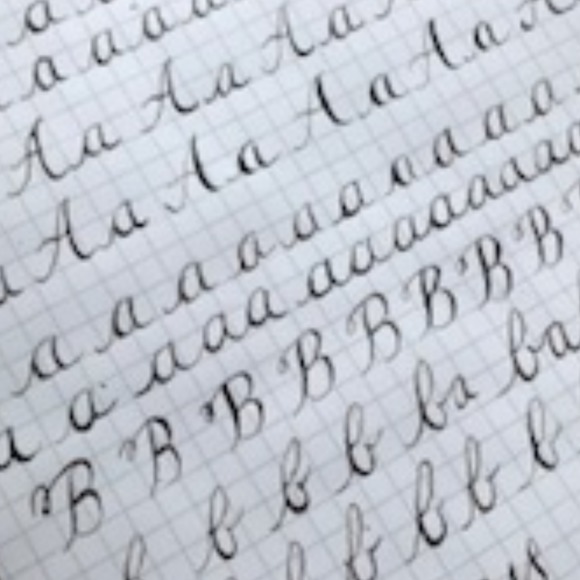 a
a a a a a
A a A a A a
a A a A a A a A a A
a a a a a a a a a a
a a a a a a a a a a a a a a a
B B B B B B B B
b b b ba ba
b b b b b b